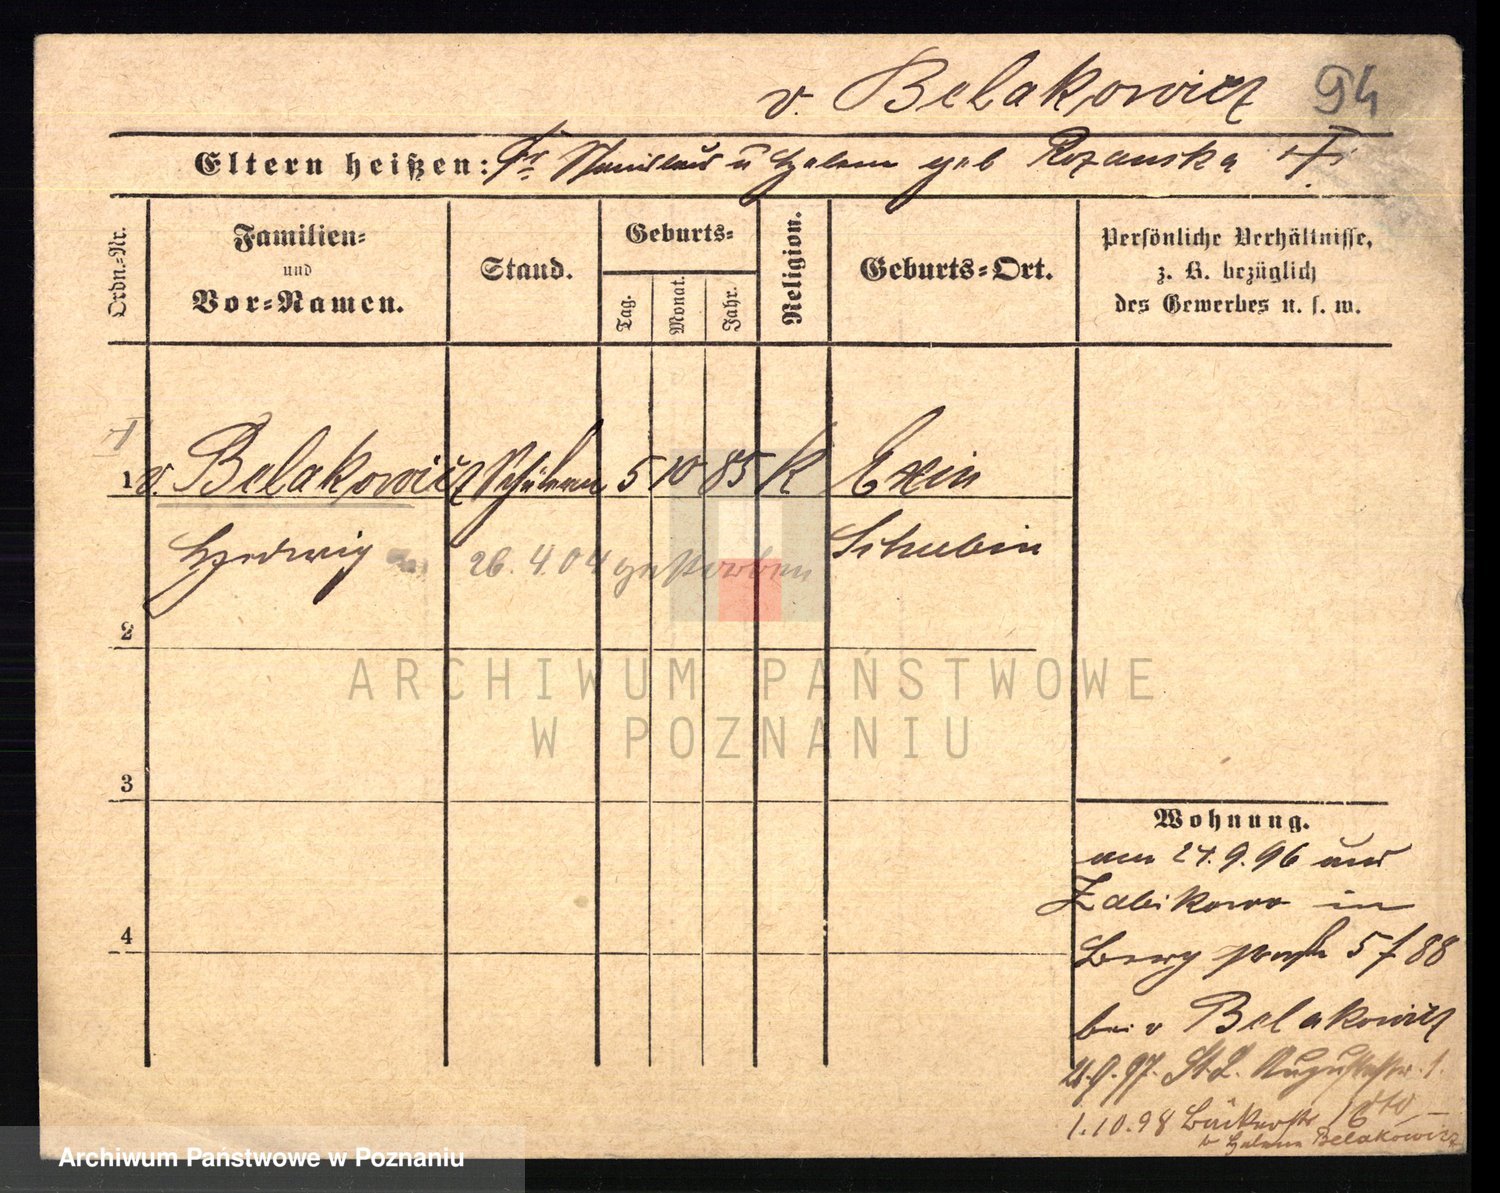 v. Belakowicz 94
Eltern heißen: Stanislaus u Helene geb Rozanska
Ordn.-Nr.
Familien-
und
Vor-Namen.
Stand.
Geburts-
Tag.
Monat.
Jahr.
Religion.
Geburts-Ort.
Persönliche Verhältnisse,
z. B. bezüglich
des Gewerbes u. s. w.
1 v. Belakowicz Schülerin 5 10 85 K Exin
Hedwig 26.4.04 gestorben Schubin
2
3
4
Wohnung.
am 24.9.96 aus
Zabikowo in
Berg 5 f. 88
bei v Belakowicz
21.9.97. St. L. Augustastr. 1.
1.10.98 Bäckerstr 16
v Helene Belakowicz
ARCHIWUM PAŃSTWOWE
W POZNANIU
Archiwum Państwowe w Poznaniu